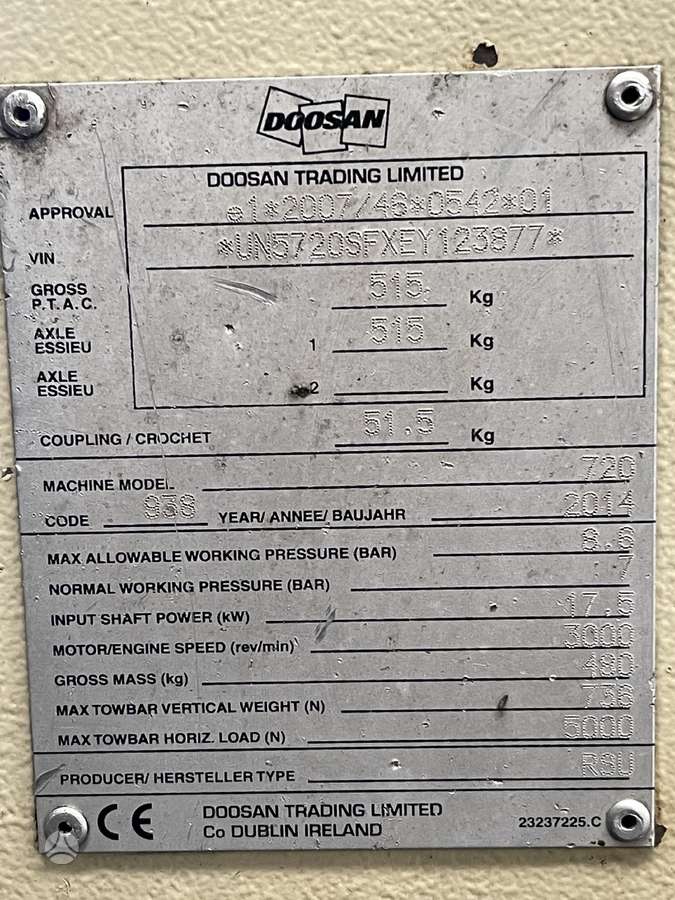 DOOSAN
DOOSAN TRADING LIMITED
APPROVAL e1*2007/46*0542*01
VIN *UN5720SFXEY123877*
GROSS P.T.A.C. 515 Kg
AXLE ESSIEU 1 515 Kg
AXLE ESSIEU 2 Kg
COUPLING / CROCHET 51.5 Kg
MACHINE MODEL 720
CODE 938 YEAR/ ANNEE/ BAUJAHR 2014
MAX ALLOWABLE WORKING PRESSURE (BAR) 8.6
NORMAL WORKING PRESSURE (BAR) 7
INPUT SHAFT POWER (kW) 17.5
MOTOR/ENGINE SPEED (rev/min) 3000
GROSS MASS (kg) 480
MAX TOWBAR VERTICAL WEIGHT (N) 736
MAX TOWBAR HORIZ. LOAD (N) 5000
PRODUCER/ HERSTELLER TYPE R3U
CE DOOSAN TRADING LIMITED
Co DUBLIN IRELAND 23237225.C